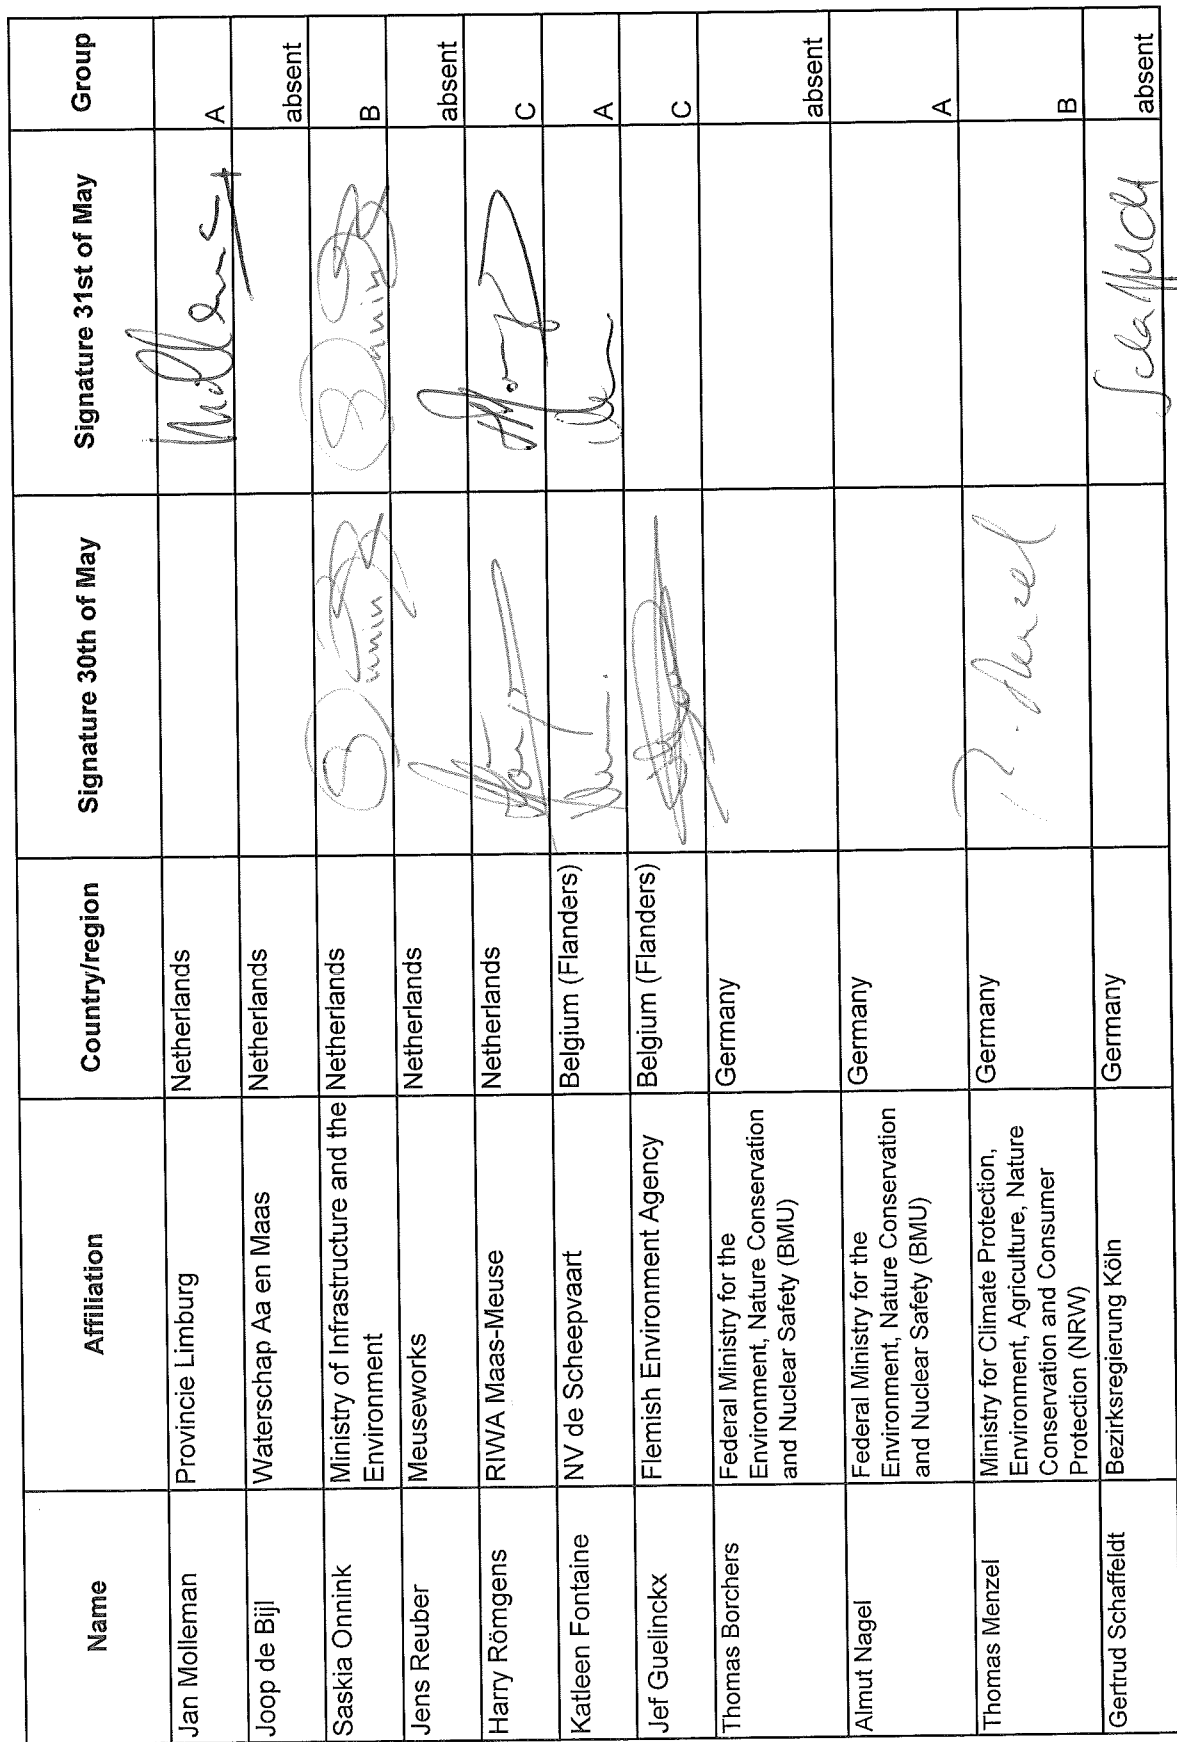 Name Affiliation Country/region Signature 30th of May Signature 31st of May Group
Jan Molleman Provincie Limburg Netherlands A
Joop de Bijl Waterschap Aa en Maas Netherlands absent
Saskia Onnink Ministry of Infrastructure and the Netherlands B
Environment
Jens Reuber Meuseworks Netherlands absent
Harry Römgens RIWA Maas-Meuse Netherlands C
Katleen Fontaine NV de Scheepvaart Belgium (Flanders) A
Jef Guelinckx Flemish Environment Agency Belgium (Flanders) C
Thomas Borchers Federal Ministry for the Germany absent
Environment, Nature Conservation
and Nuclear Safety (BMU)
Almut Nagel Federal Ministry for the Germany A
Environment, Nature Conservation
and Nuclear Safety (BMU)
Thomas Menzel Ministry for Climate Protection, Germany B
Environment, Agriculture, Nature
Conservation and Consumer
Protection (NRW)
Gertrud Schaffeldt Bezirksregierung Köln Germany absent